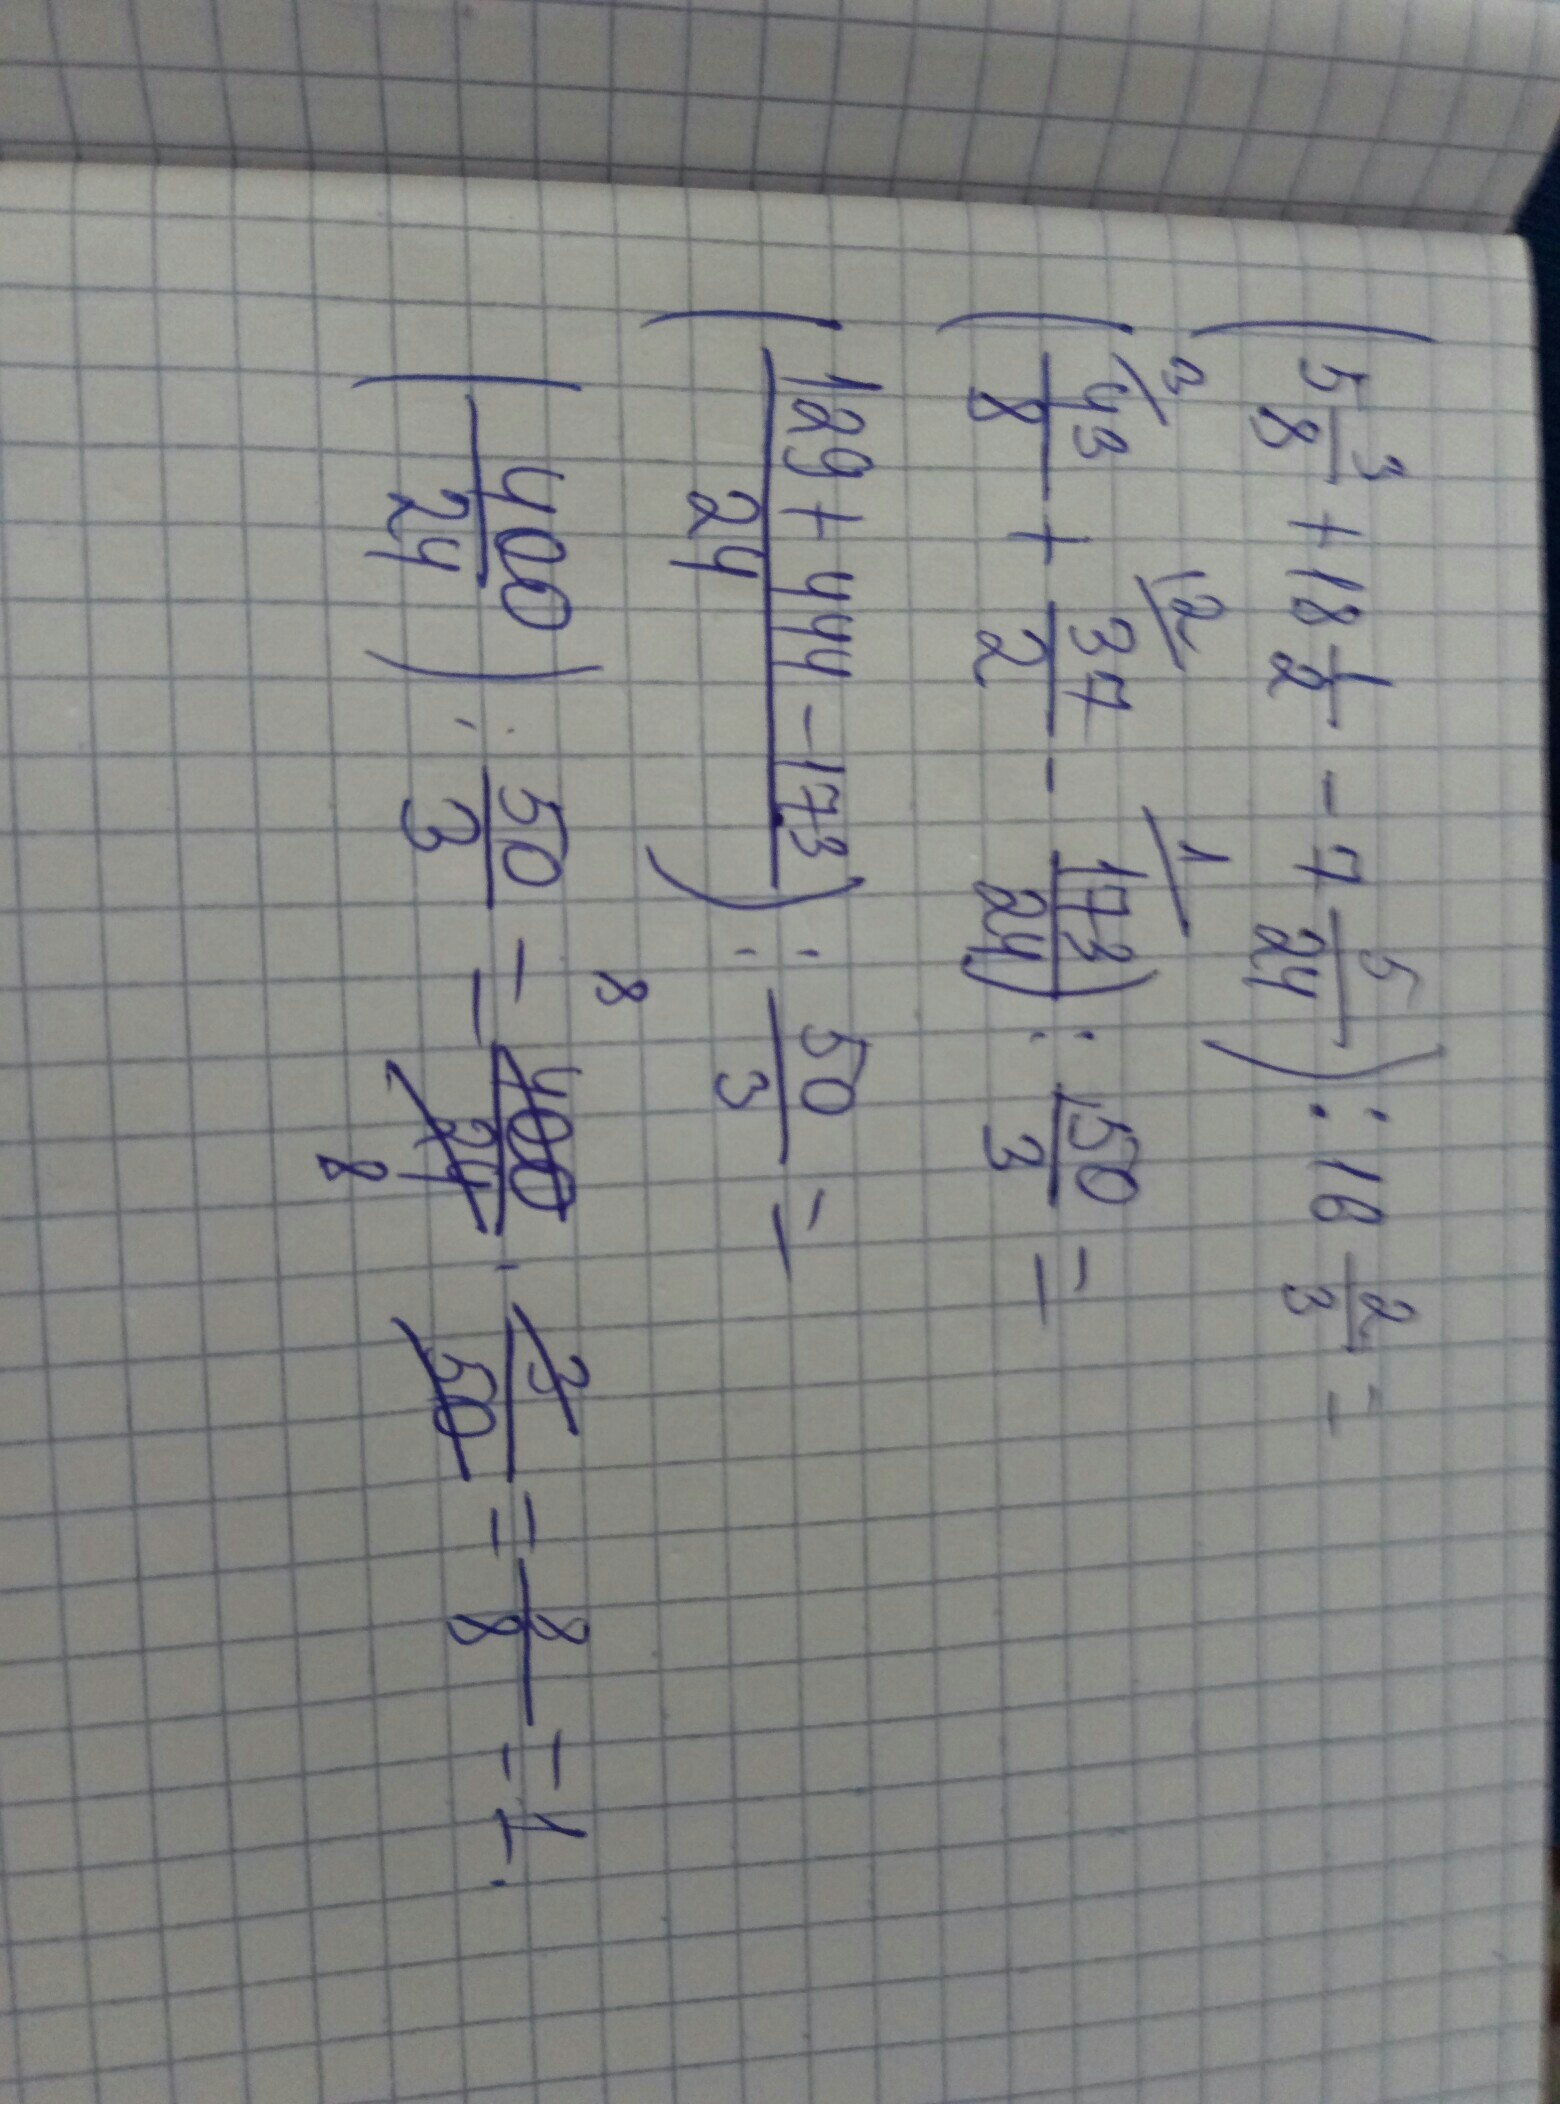 (5 3/8 + 18 1/2 - 7 5/24) : 16 2/3 =
3 12 1
(43/8 + 37/2 - 173/24) : 50/3 =
(129 + 444 - 173 / 24) : 50/3 =
8
(400/24) : 50/3 = 400/24 · 3/50 = 8/8 = 1.
8